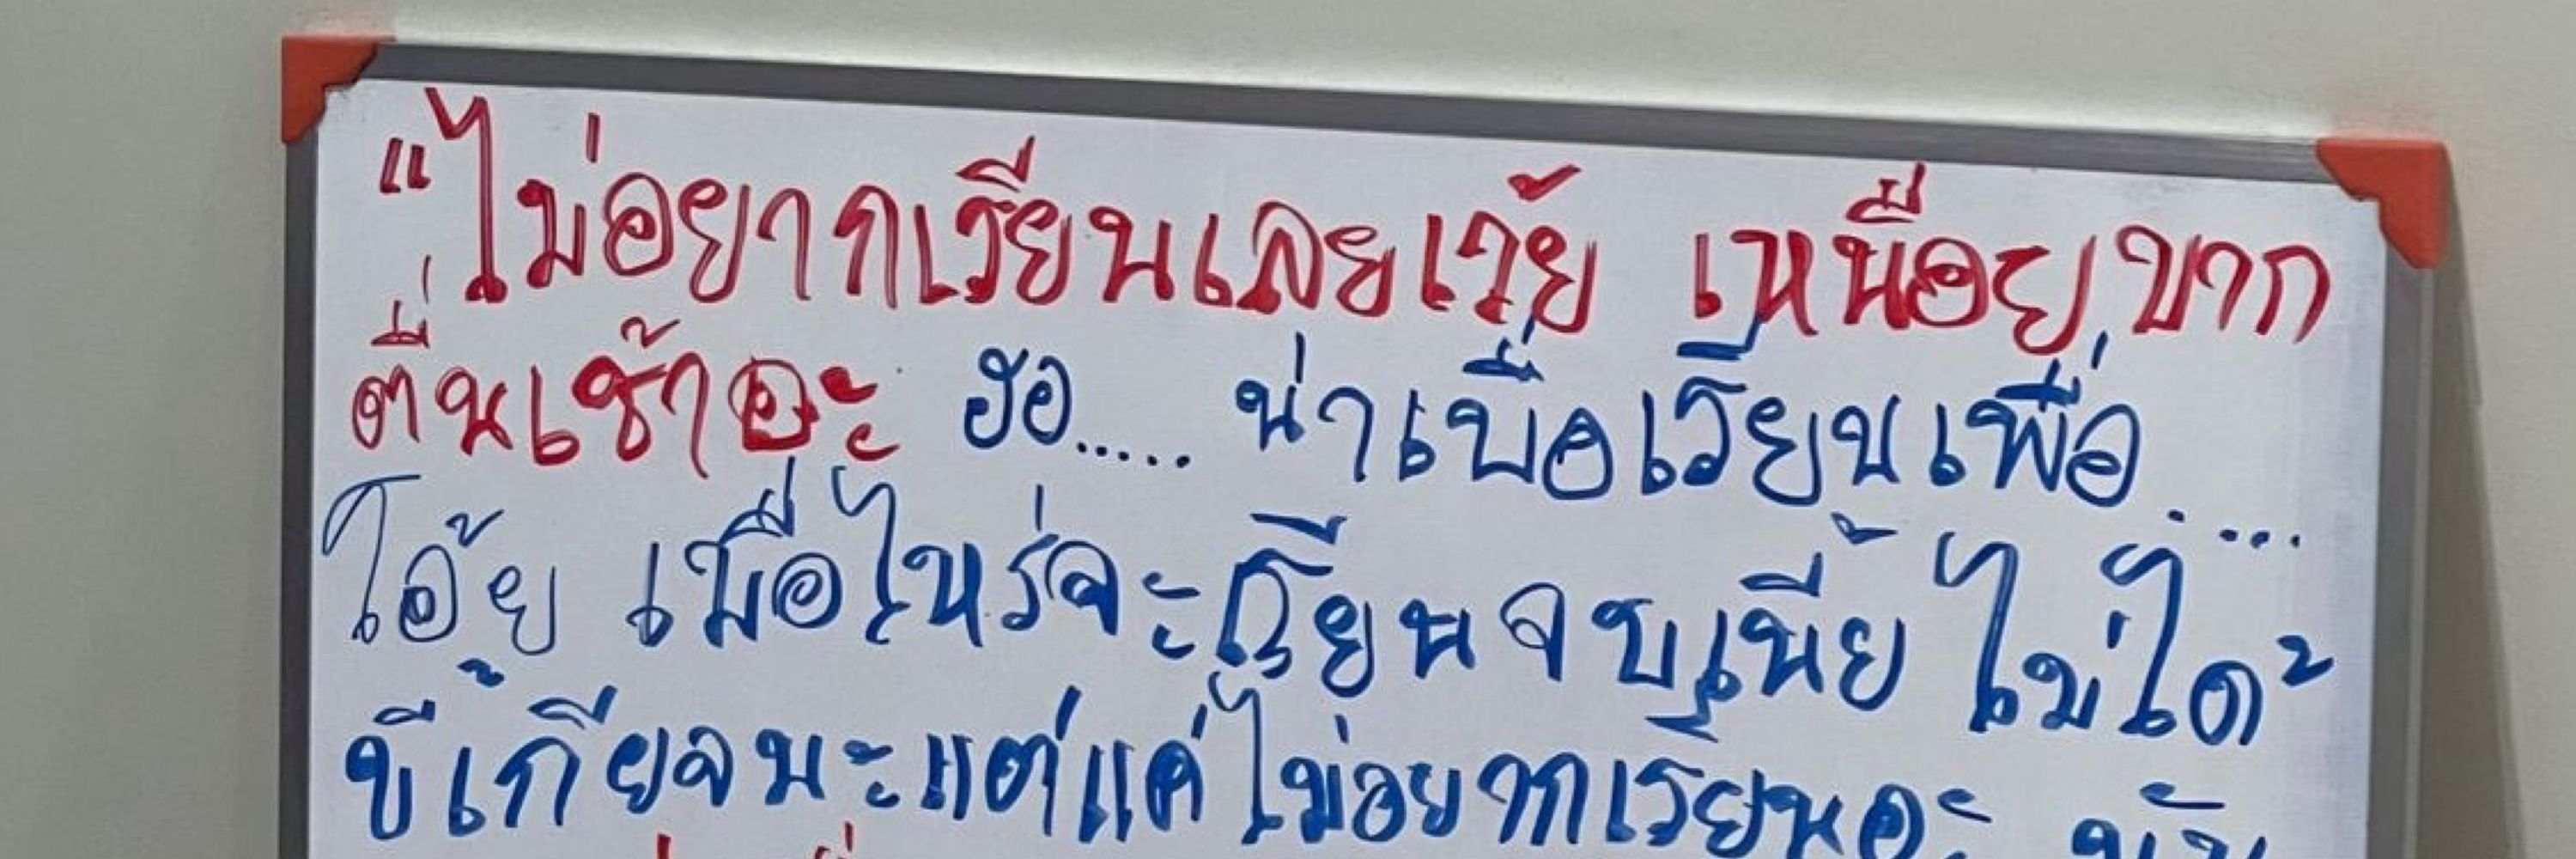 "ไม่อยากเรียนเลยเว้ย เหนื่อยมาก
ตื่นเช้าอะ ฮือ..... น่าเบื่อเรียนเพื่อ....
โอ้ย เมื่อไหร่จะเรียนจบเนี้ย ไม่ได้
ขี้เกียจนะแต่แค่ไม่อยากเรียนอะ